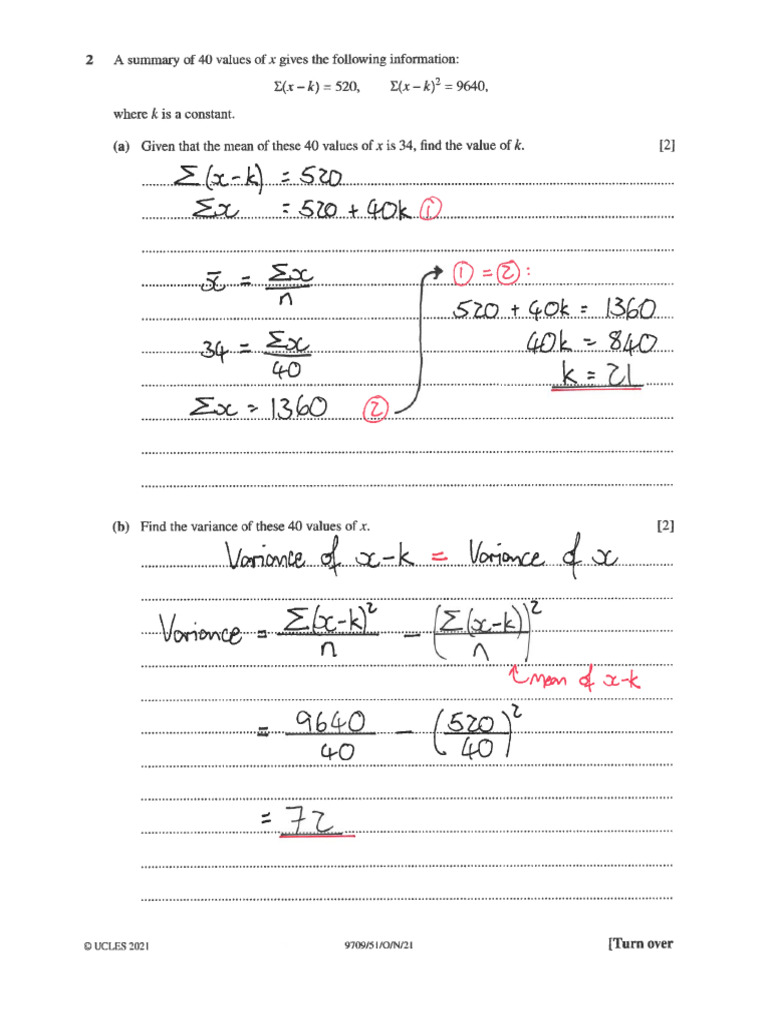 2 A summary of 40 values of x gives the following information:
Σ(x – k) = 520, Σ(x – k)² = 9640,
where k is a constant.
(a) Given that the mean of these 40 values of x is 34, find the value of k. [2]
Σ(x-k) = 520
Σx = 520 + 40k ①
x̄ = Σx/n
34 = Σx/40
Σx = 1360 ②
① = ② :
520 + 40k = 1360
40k = 840
k = 21
(b) Find the variance of these 40 values of x. [2]
Variance of x-k = Variance of x
Variance = Σ(x-k)²/n - (Σ(x-k)/n)²
↑ mean of x-k
= 9640/40 - (520/40)²
= 72
© UCLES 2021 9709/51/O/N/21 [Turn over